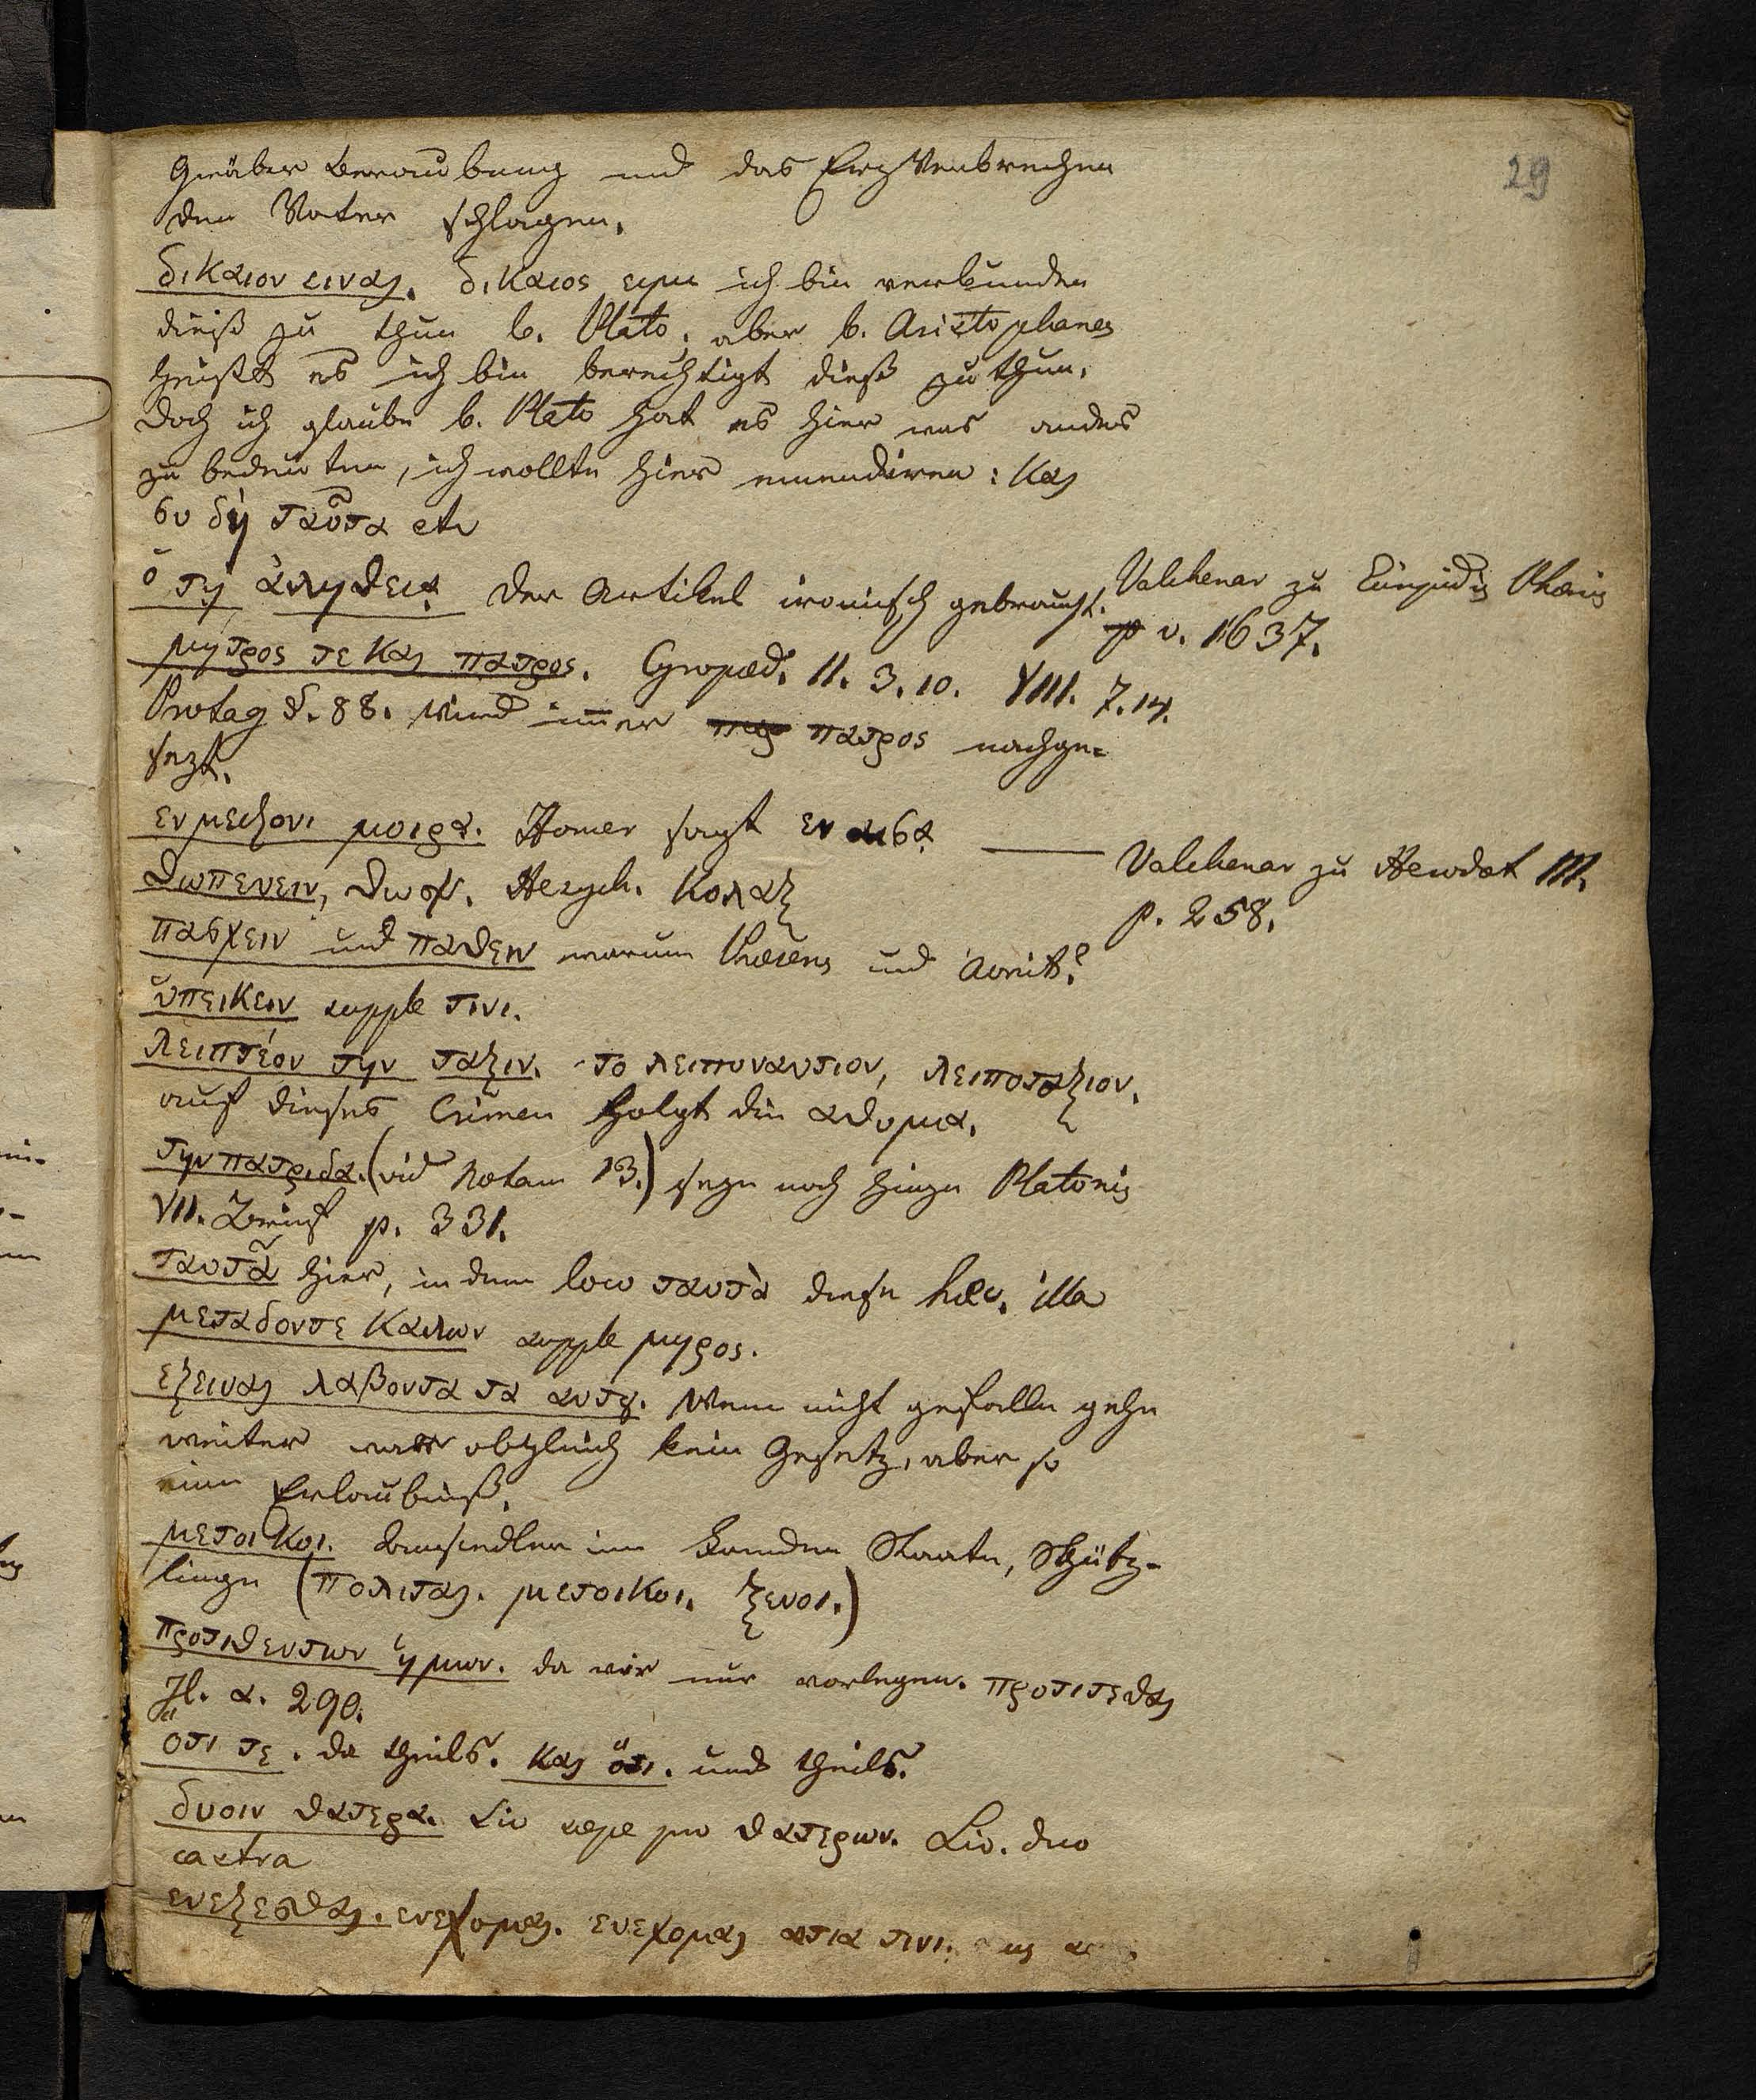 29
Gräber Beraubung und das Erz Verbrechen
den Vater schlagen.
δικαιον ειναι. δικαιος ειμι ich bin verbunden
dieß zu thun b. Plato, aber b. Aristophanes
heißt es ich bin berechtigt dieß zu thun.
Doch ich glaube b. Plato hat es hier was anders
zu bedeuten, ich wollte hier emendiren: και
συ δὴ ταῦτα etc
ὁ τῃ ἀληθεια der Artikel ironisch gebraucht. Valckenar zu Euripidis Phœnis
v. 1637.
μητρος τε και πατρος. Cyropæd. II. 3. 10. VIII. 7. 14.
Protag §. 88. wird im̄er πατρος nachge-
sezt.
εν μειζονι μοιρα. Homer sagt εν αισα —— Valckenar zu Herodot III.
p. 258.
θωπευειν, θωψ. Hesych. κολαξ
πασχειν und παθειν warum Præsens und Aorist?
ὑπεικειν supple τινι.
λειπτέον την ταξιν. το λειποναυτιον, λειποταξιον,
auf dieses Crimen folgt die ατιμια.
την πατριδα. (vid Notam 13.) setze noch hinzu Platonis
VII. Brief p. 331.
ταυτᾶ hier, in dem loco ταυτὰ diese hæc, illa
μεταδοντε καλων supple μερος.
εξειναι λαβοντα τα αυτȣ. Wem nicht gefalle gehe
weiter war obgleich kein Gesetz, aber so
eine Erlaubniß.
μετοικοι. Ansiedler im fremden Staate, Schütz-
linge (πολιται. μετοικοι. ξενοι.)
προτιθεντων ἡμων. da wir nur vorlegen. προτιτεθαι
Il. α. 290.
ὁτι τε. da theils. και ὅτι. und theils.
δυοιν θατερα. Sic sæpe pro θατερων. Liv. duo
castra
ενεξεσθαι. ενεχομαι. ενεχομαι αιτια τινι.